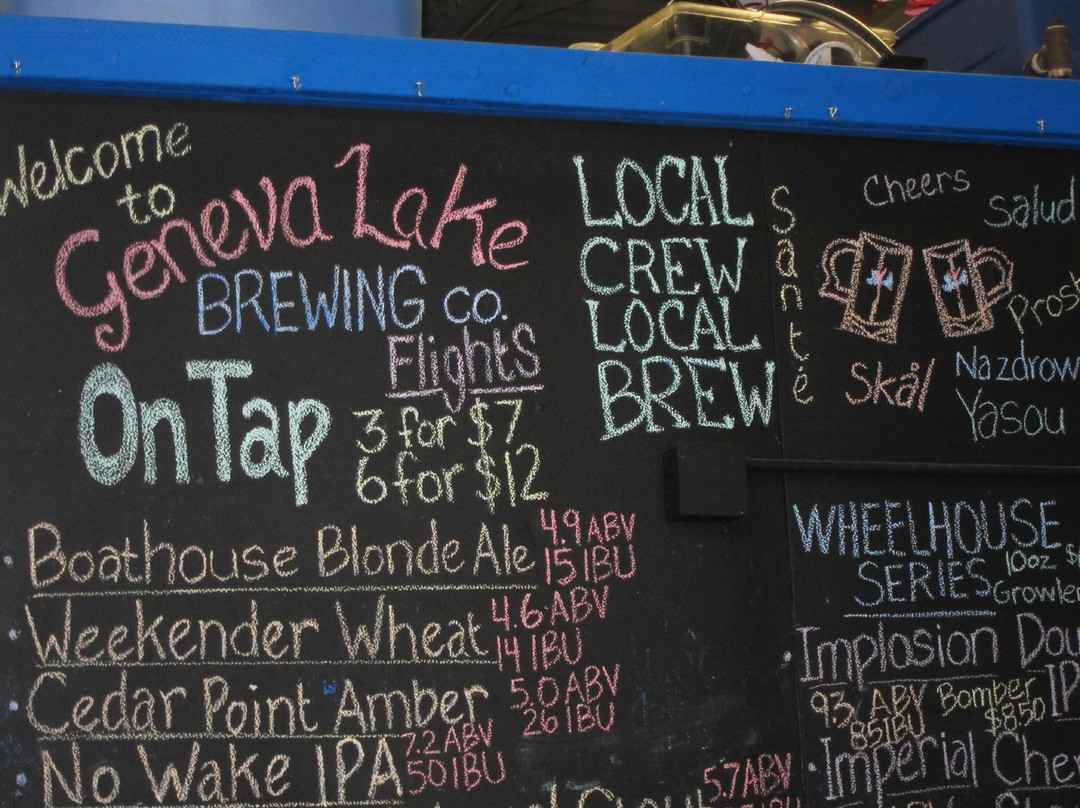 Welcome
to
Geneva Lake
BREWING CO.
On Tap
Flights
3 for $7
6 for $12
LOCAL
CREW
LOCAL
BREW
Santé
Cheers
Salud
Skål
Yasou
Boathouse Blonde Ale 4.9 ABV
15 IBU
Weekender Wheat 4.6 ABV
14 IBU
Cedar Point Amber 5.0 ABV
26 IBU
No Wake IPA 7.2 ABV
50 IBU
5.7 ABV
WHEELHOUSE
SERIES 10oz
Implosion
9.3 ABV Bomber
85 IBU $850
Imperial